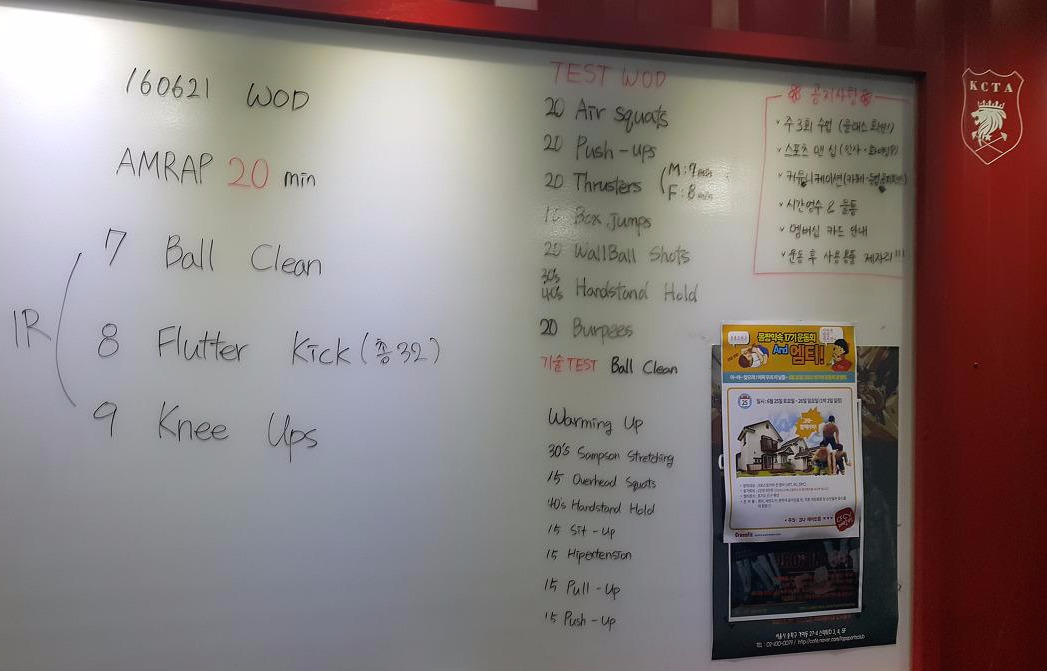 160621 WOD
AMRAP 20 min
7 Ball Clean
1R
8 Flutter Kick (총 32)
9 Knee Ups
TEST WOD
20 Air squats
20 Push-ups
20 Thrusters
M:7min
F:8min
Box Jumps
20 WallBall Shots
30's
40's Handstand Hold
20 Burpees
기술TEST Ball Clean
Warming Up
30's Sampson Stretching
15 Overhead Squats
40's Handstand Hold
15 Sit-Up
15 Hipertension
15 Pull-Up
15 Push-Up
공지사항
주 3회 수업
스포츠 맨 십
커뮤니케이션
시간엄수 &
멤버십 카드 안내
운동 후 사용용품 제자리!!!
KCTA
17기 운동회
And 엠티!
25
일시 : 6월 25일 토요일 ~ 26일 일요일 (1박 2일 일정)
CrossFit